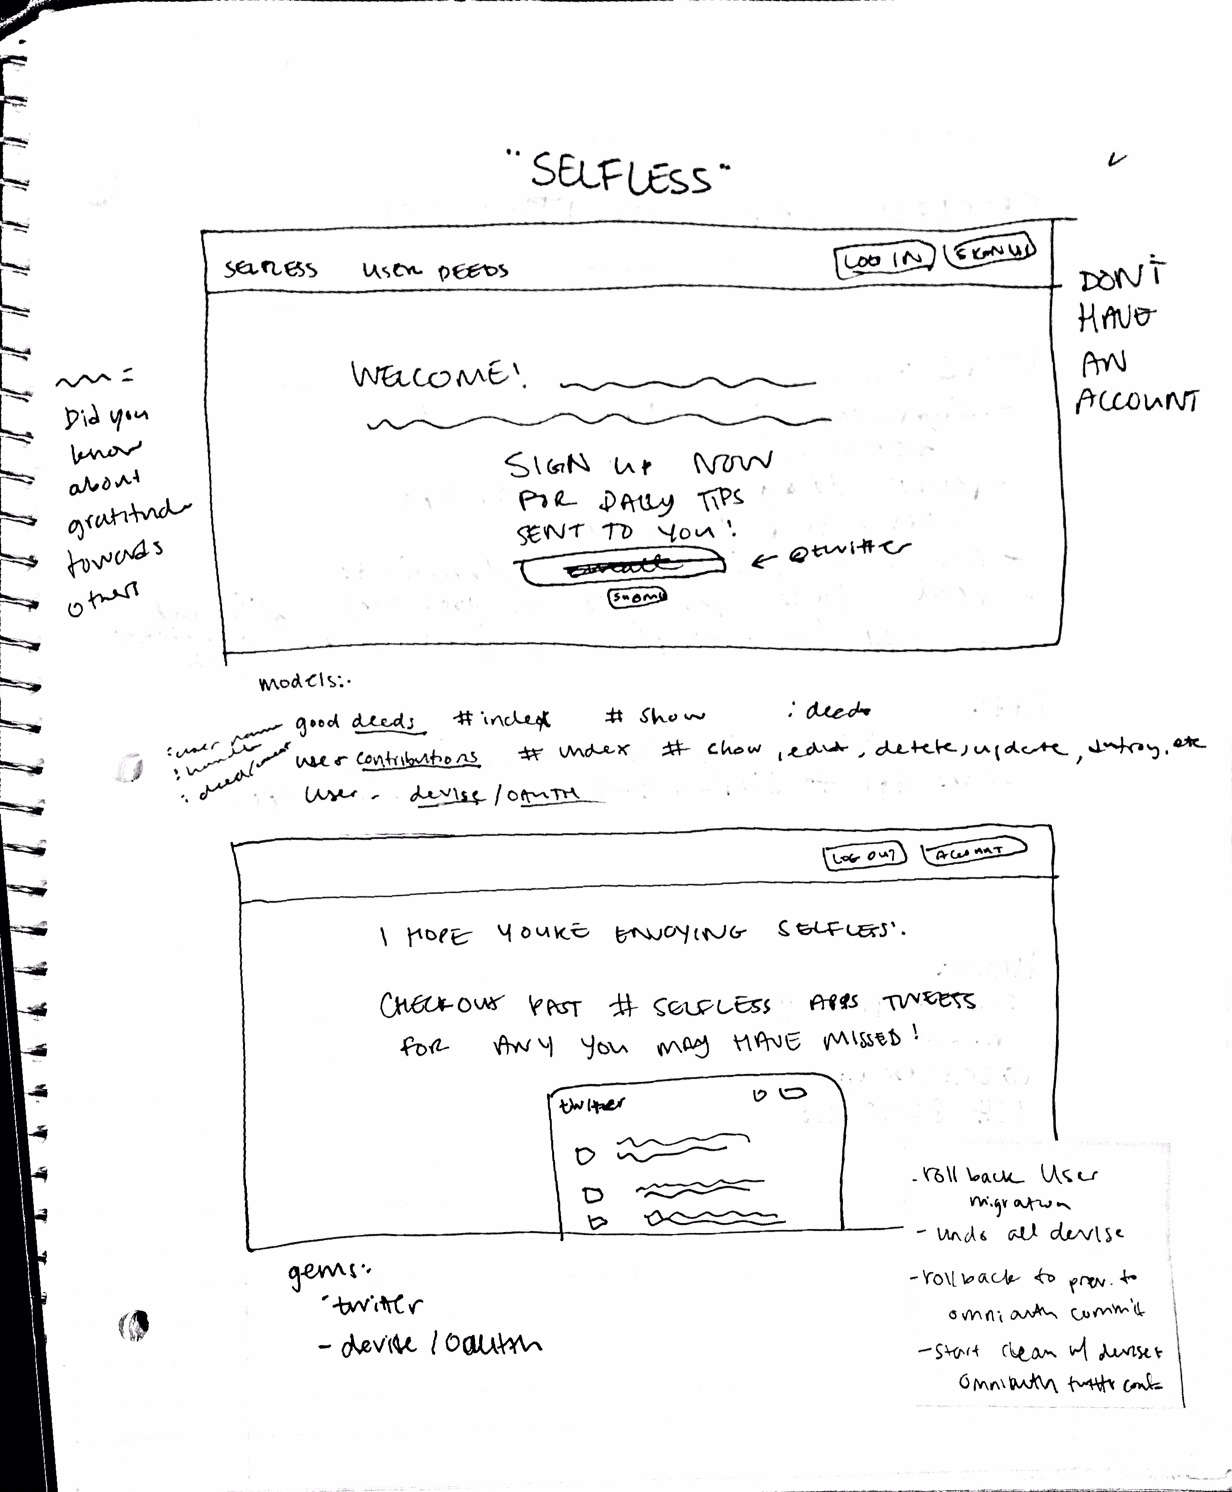 "SELFLESS"
SELFLESS USER DEEDS LOG IN SIGN UP
DON'T
HAVE
AN
ACCOUNT
WELCOME!
=
Did you
know
about
gratitude
towards
others
SIGN UP NOW
FOR DAILY TIPS
SENT TO YOU!
← @twitter
submit
models:
good deeds #index # show : deeds
user contributions # index # show, edit, delete, update, etc
: user name
: handle
User - devise/OAUTH
LOG OUT ACCOUNT
I HOPE YOU'RE ENJOYING SELFLESS.
CHECK OUT PAST # SELFLESS APPS TWEETS
FOR ANY YOU MAY HAVE MISSED!
twitter
gems:
- twitter
- devise / oauth
- roll back User
migration
- undo all devise
- rollback to prev. to
omniauth commit
- start clean w/ devise +
omniauth twitter